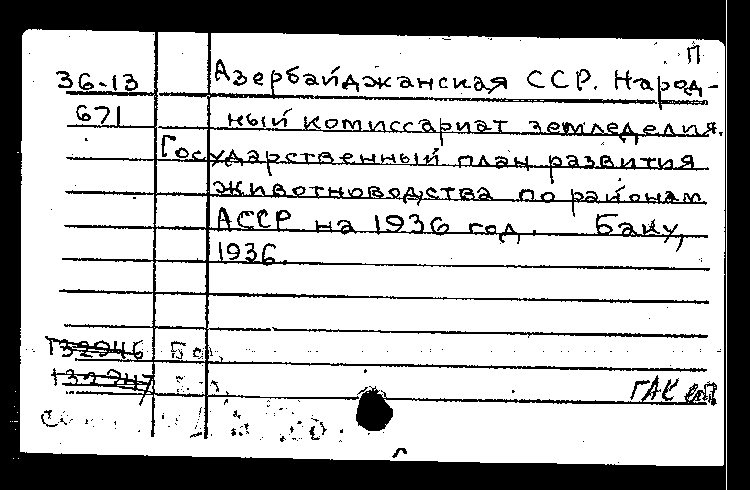 П
36-13 Азербайджанская ССР. Народ-
671 ный комиссариат земледелия.
Государственный план развития
животноводства по районам
АССР на 1936 год. Баку,
1936.
Т32946
Т32947
ГАК